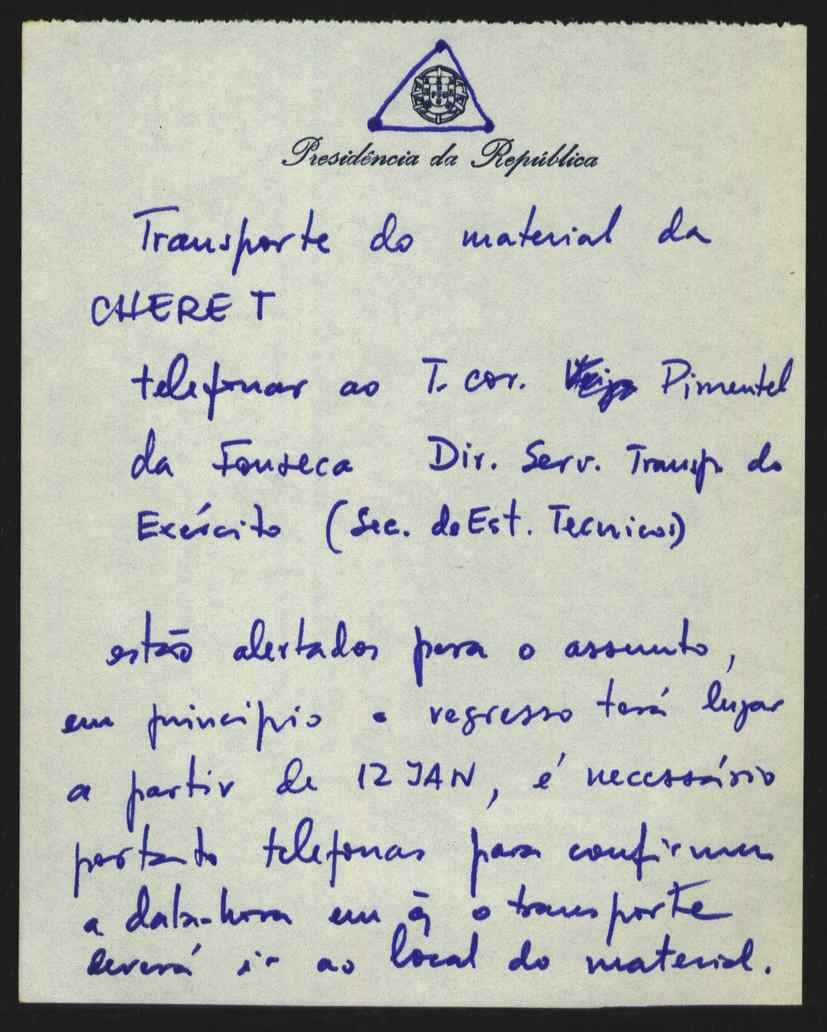 Presidência da República
Transporte do material da
CHERET
telefonar ao T. cor. Pimentel
da Fonseca Dir. Serv. Transp. do
Exército (Sec. de Est. Tecnicos)
estão alertados para o assunto,
em principio o regresso terá lugar
a partir de 12 JAN, é necessário
portanto telefonar para confirmar
a data-hora em q̃ o transporte
deverá ir ao local do material.